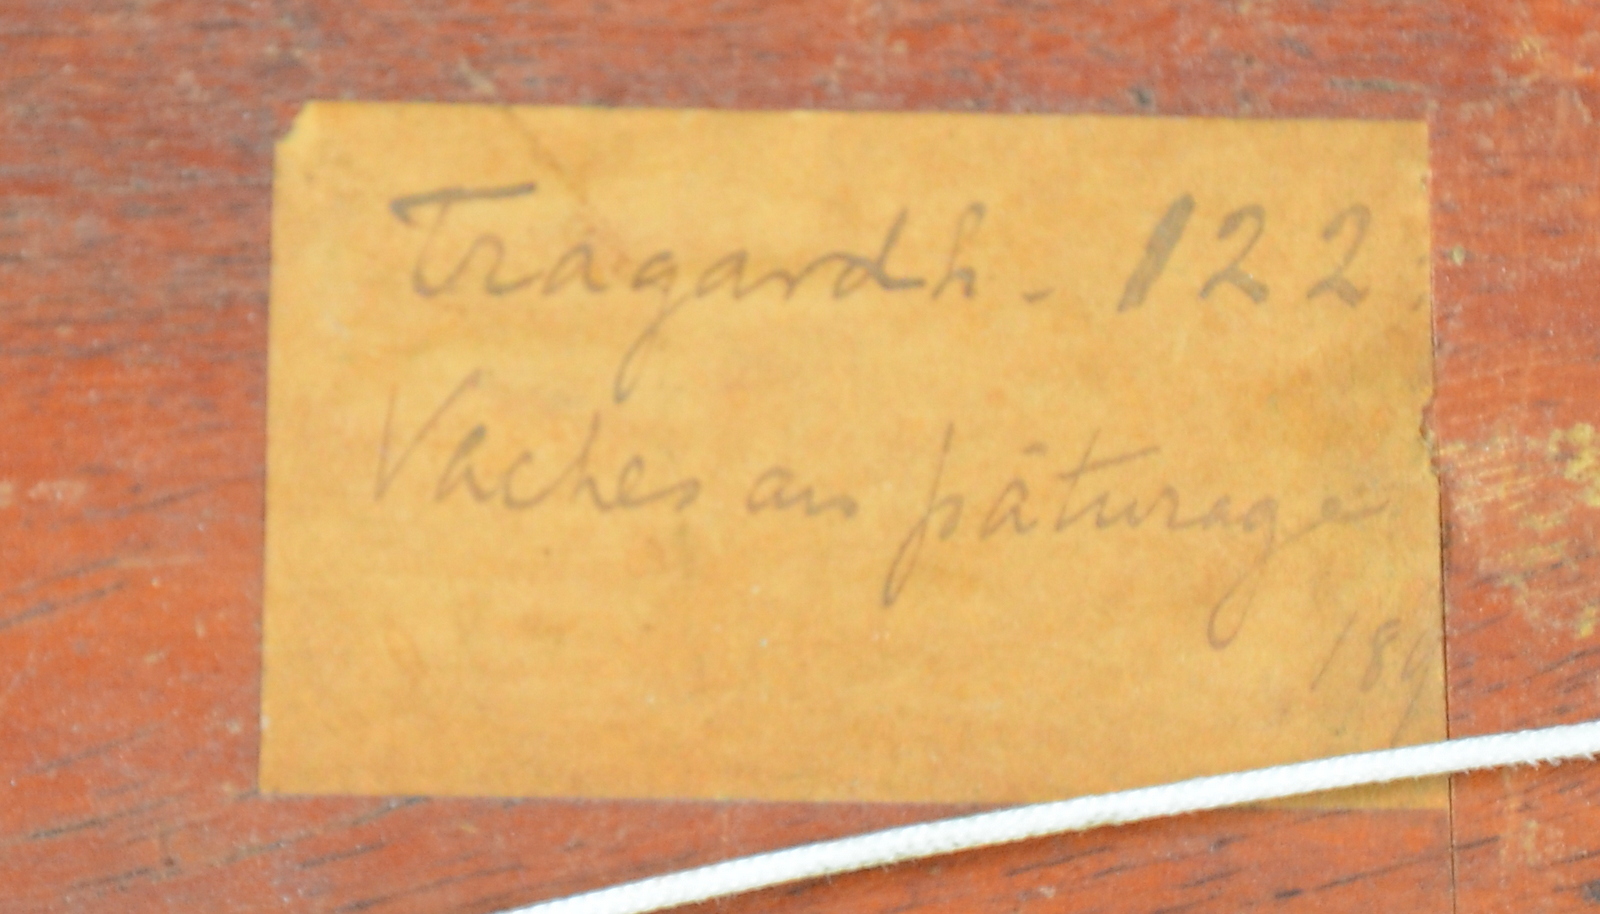 Tragardh - 122
Vaches au pâturage
189